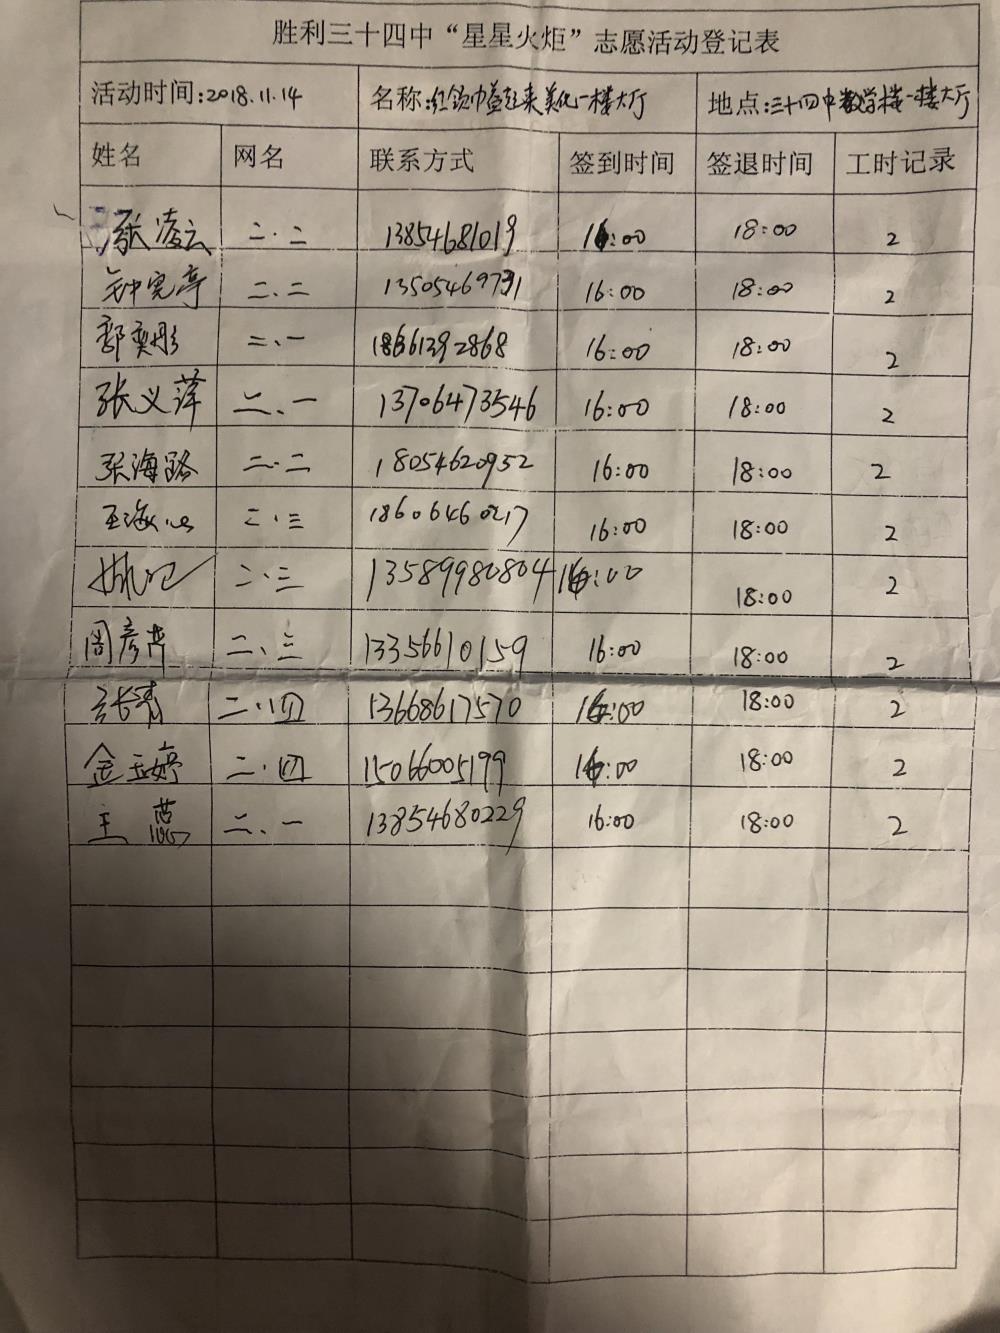 胜利三十四中“星星火炬”志愿活动登记表
活动时间:2018.11.14 名称:红领巾益起来美化一楼大厅 地点:三十四中教学楼一楼大厅
姓名 网名 联系方式 签到时间 签退时间 工时记录
张凌云 二.二 13854681019 16:00 18:00 2
钟宪亭 二、二 13505469731 16:00 18:00 2
郭奕彤 二、一 18661392868 16:00 18:00 2
张义萍 二、一 13706473546 16:00 18:00 2
张海路 二.二 18054620952 16:00 18:00 2
王海 二.三 18606460217 16:00 18:00 2
二、三 13589980804 16:00 18:00 2
周彦 二、三 13356610159 16:00 18:00 2
二.四 13668617570 16:00 18:00 2
金玉婷 二.四 15066005199 16:00 18:00 2
王 二、一 13854680229 16:00 18:00 2